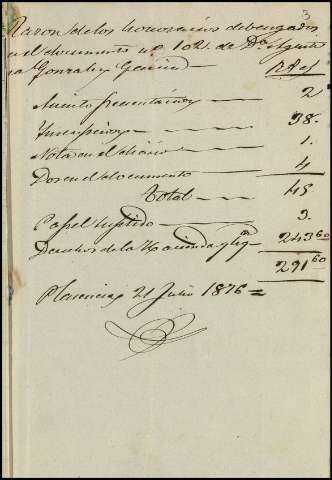 3
Razon de los honorarios debengados
en el documento nº 102. de Dª Agusti
na Gonzalez Garcia
Rs Cs
Asiento presentacion 2
Inscripcion 38.
Nota en el diario 1.
Dos en el documento 4
Total 45
Papel suplido 3.
Derechos de la Hacienda y 243 60
291 60
Plasencia, 21 Julio 1876 =